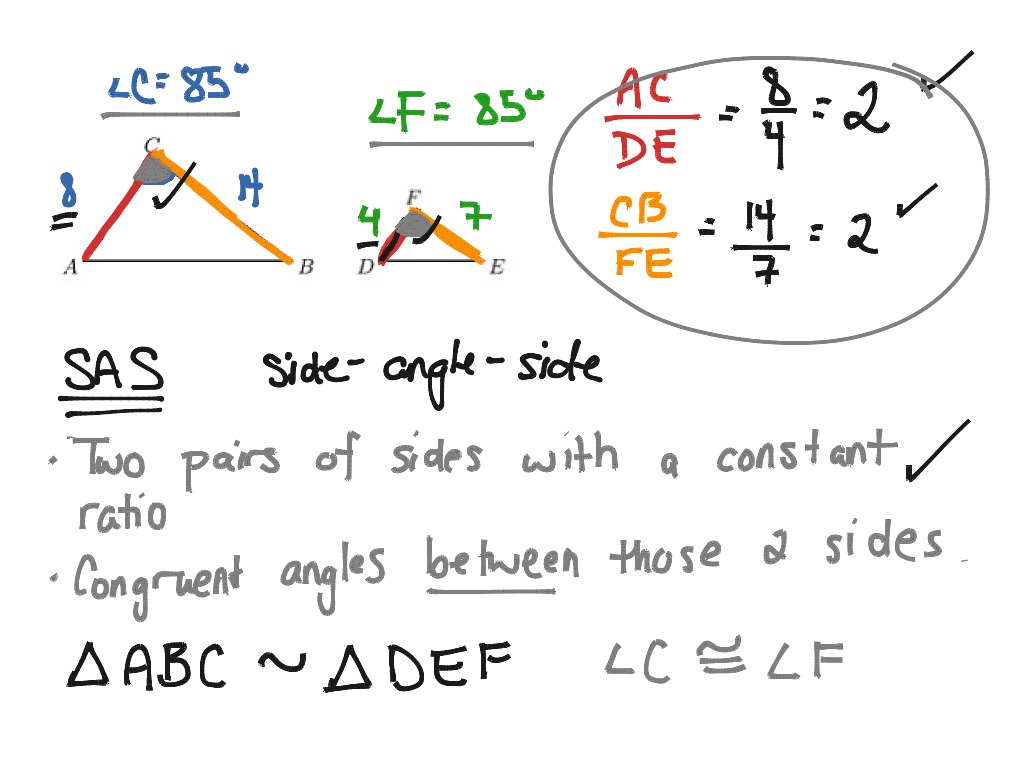 ∠C = 85°
∠F = 85°
AC/DE = 8/4 = 2 ✓
CB/FE = 14/7 = 2 ✓
C
8
14
A
B
F
4
7
D
E
SAS side-angle-side
· Two pairs of sides with a constant ✓
ratio
· Congruent angles between those 2 sides.
△ABC ~ △DEF ∠C ≅ ∠F